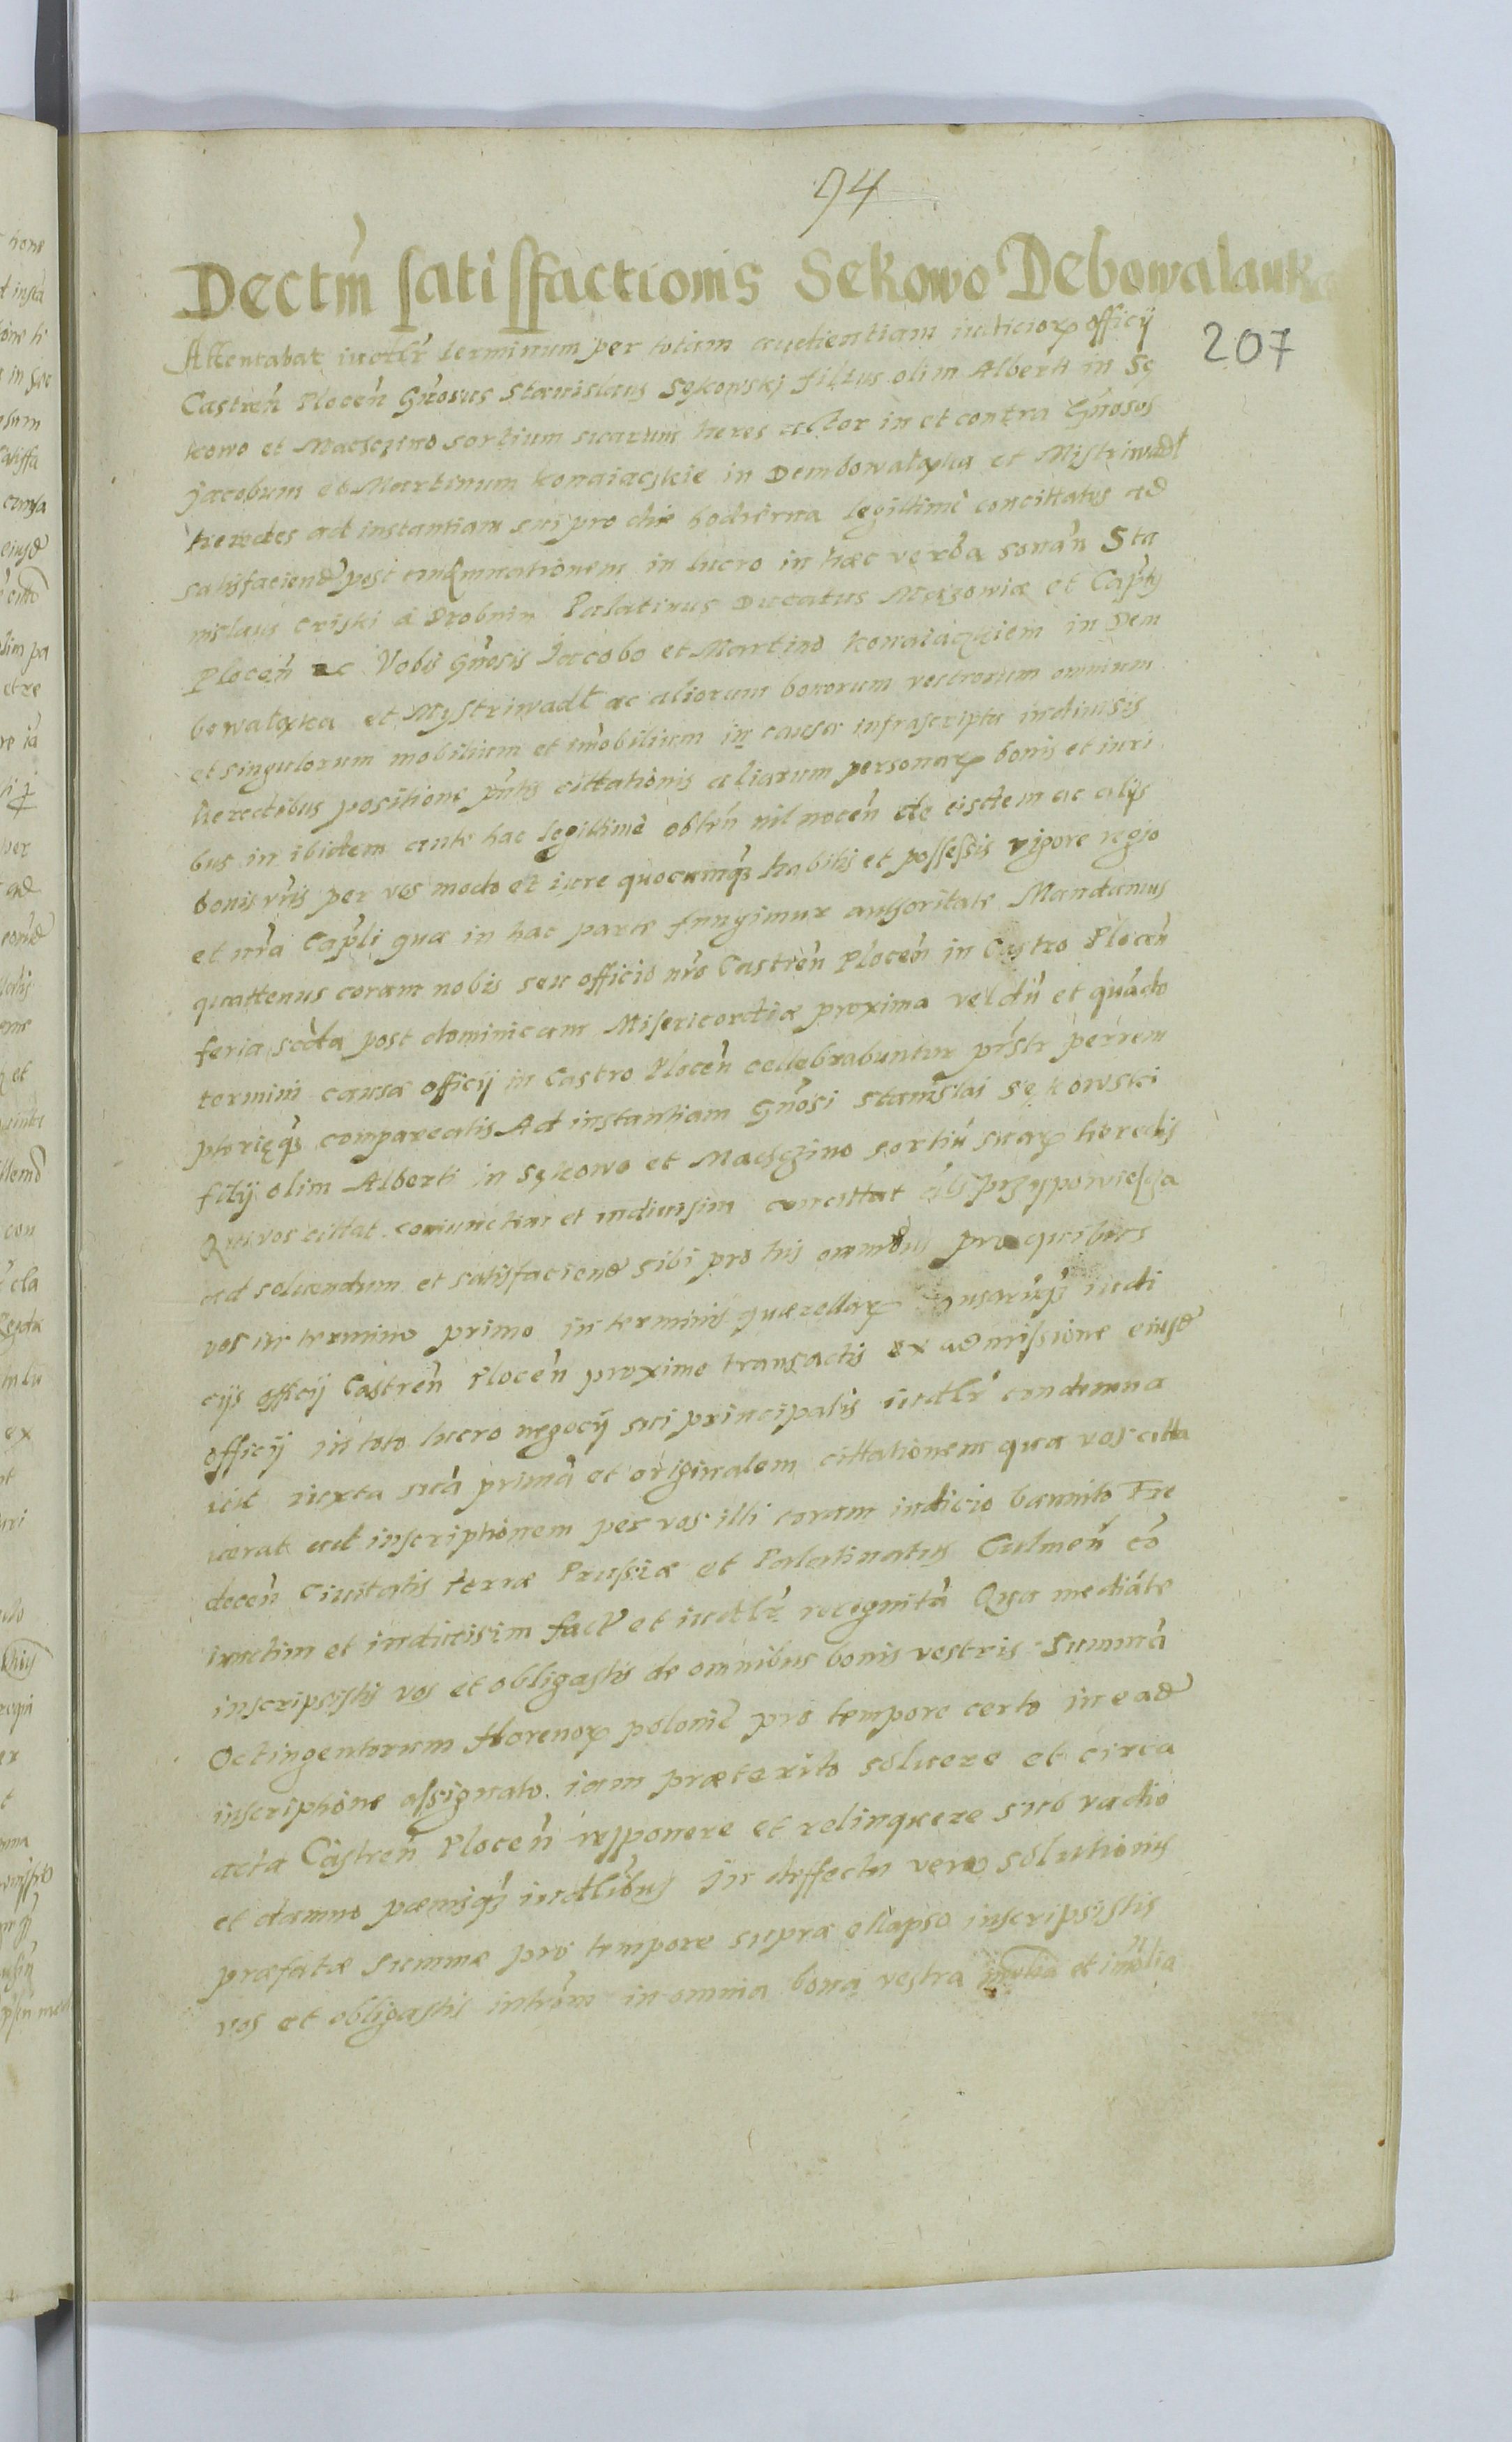 94
Dectm̄ satisfactionis Sekowo Debowalauk
207
Attentabat iudtlr̄ terminum per totam audientiam iudiciorꝝ officij
Castren̄ Plocen̄ Gn̄osus Stanislaus Sękowskj filius olim Alberti in Sę
kowo et Machczino sortium suarum heres actor in et contra Gn̄osos
Jacobum et Martinum konaiaczkie in Dembowaląka et Mistriwadt
heredes ad instantiam sui pro die hodierna legittimè concittatos ad
satisfaciend post condemnationem in lucro in hæc verba sonan̄ Sta
nislaus Criski à Drobnin Palatinus Ducatus Mazowiæ et Cap
Plocen̄ ec Vobis Gn̄osis Jacobo et Martino konaiaczkiem in Dem
bowaląka et Mystriwadt ac aliorum bonorum vestrorum omnium
et singulorum mobilium et im̄obilium in causa infrascripta indiuisis
heredibus positione pn̄tis cittationis aliarum personarꝝ bonis et iuri
bus in ibidem ante hac legittimè obten̄ nil nocen̄ de eisdem ac alijs
bonis vr̄is per vos modo et iure quocunqꝫ habitis et possessis vigore regio
et nr̄a Capli qua in hac parte fungimur authoritate Mandamus
quattenus coram nobis seu officio nr̄o Castren̄ Plocen̄ in Castro Plocen̄
feria scda post dominicam Misericordiæ proxima vel dū et quādo
termini causa officij in Castro Plocen̄ cellebrabuntur pr̄str perem
ptorięqꝫ compareatis Ad instantiam Gn̄osi Stanislai Sękowski
filij olim Alberti in Sękowo et Machczino sortiū suarꝝ heredis
Qui vos cittat coniunctim et indiuisim concittat als przypowiescza
ad soluendum et satisfaciend sibi pro his omnibus pro quibus
vos in termino primo in terminis quærellarꝝ iudi
cijs officij Castren̄ Plocen̄ proxime transactis ex admissione eiusd
officij in toto lucro negocij sui principalis iudtlr̄ condemna
uit iuxta suā primā et originalem cittationem qua vos citta
uerat ad inscriptionem per vos illi coram iudicio bannito Fre
decen̄ Ciuitatis terræ Prussiæ et Palatinatus Culmen̄ cō
iunctim et indiuisim fact et iudtlr̄ recognitā Qua mediāte
inscripsistis vos et obligastis de omnibus bonis vestris Summā
Octingentorum florenorꝝ polonie pro tempore certo in ead
inscriptione assignato iam præterito soluere et circa
acta Castren̄ Plocen̄ reponere et relinquere sub vadio
et damno pœnisqꝫ iudtlibus In deffectu vero solutionis
præfatæ summæ pro tempore supra ellapso inscripsistis
vos et obligastis intrōm in omnia bona vestra mobilia et im̄obilia